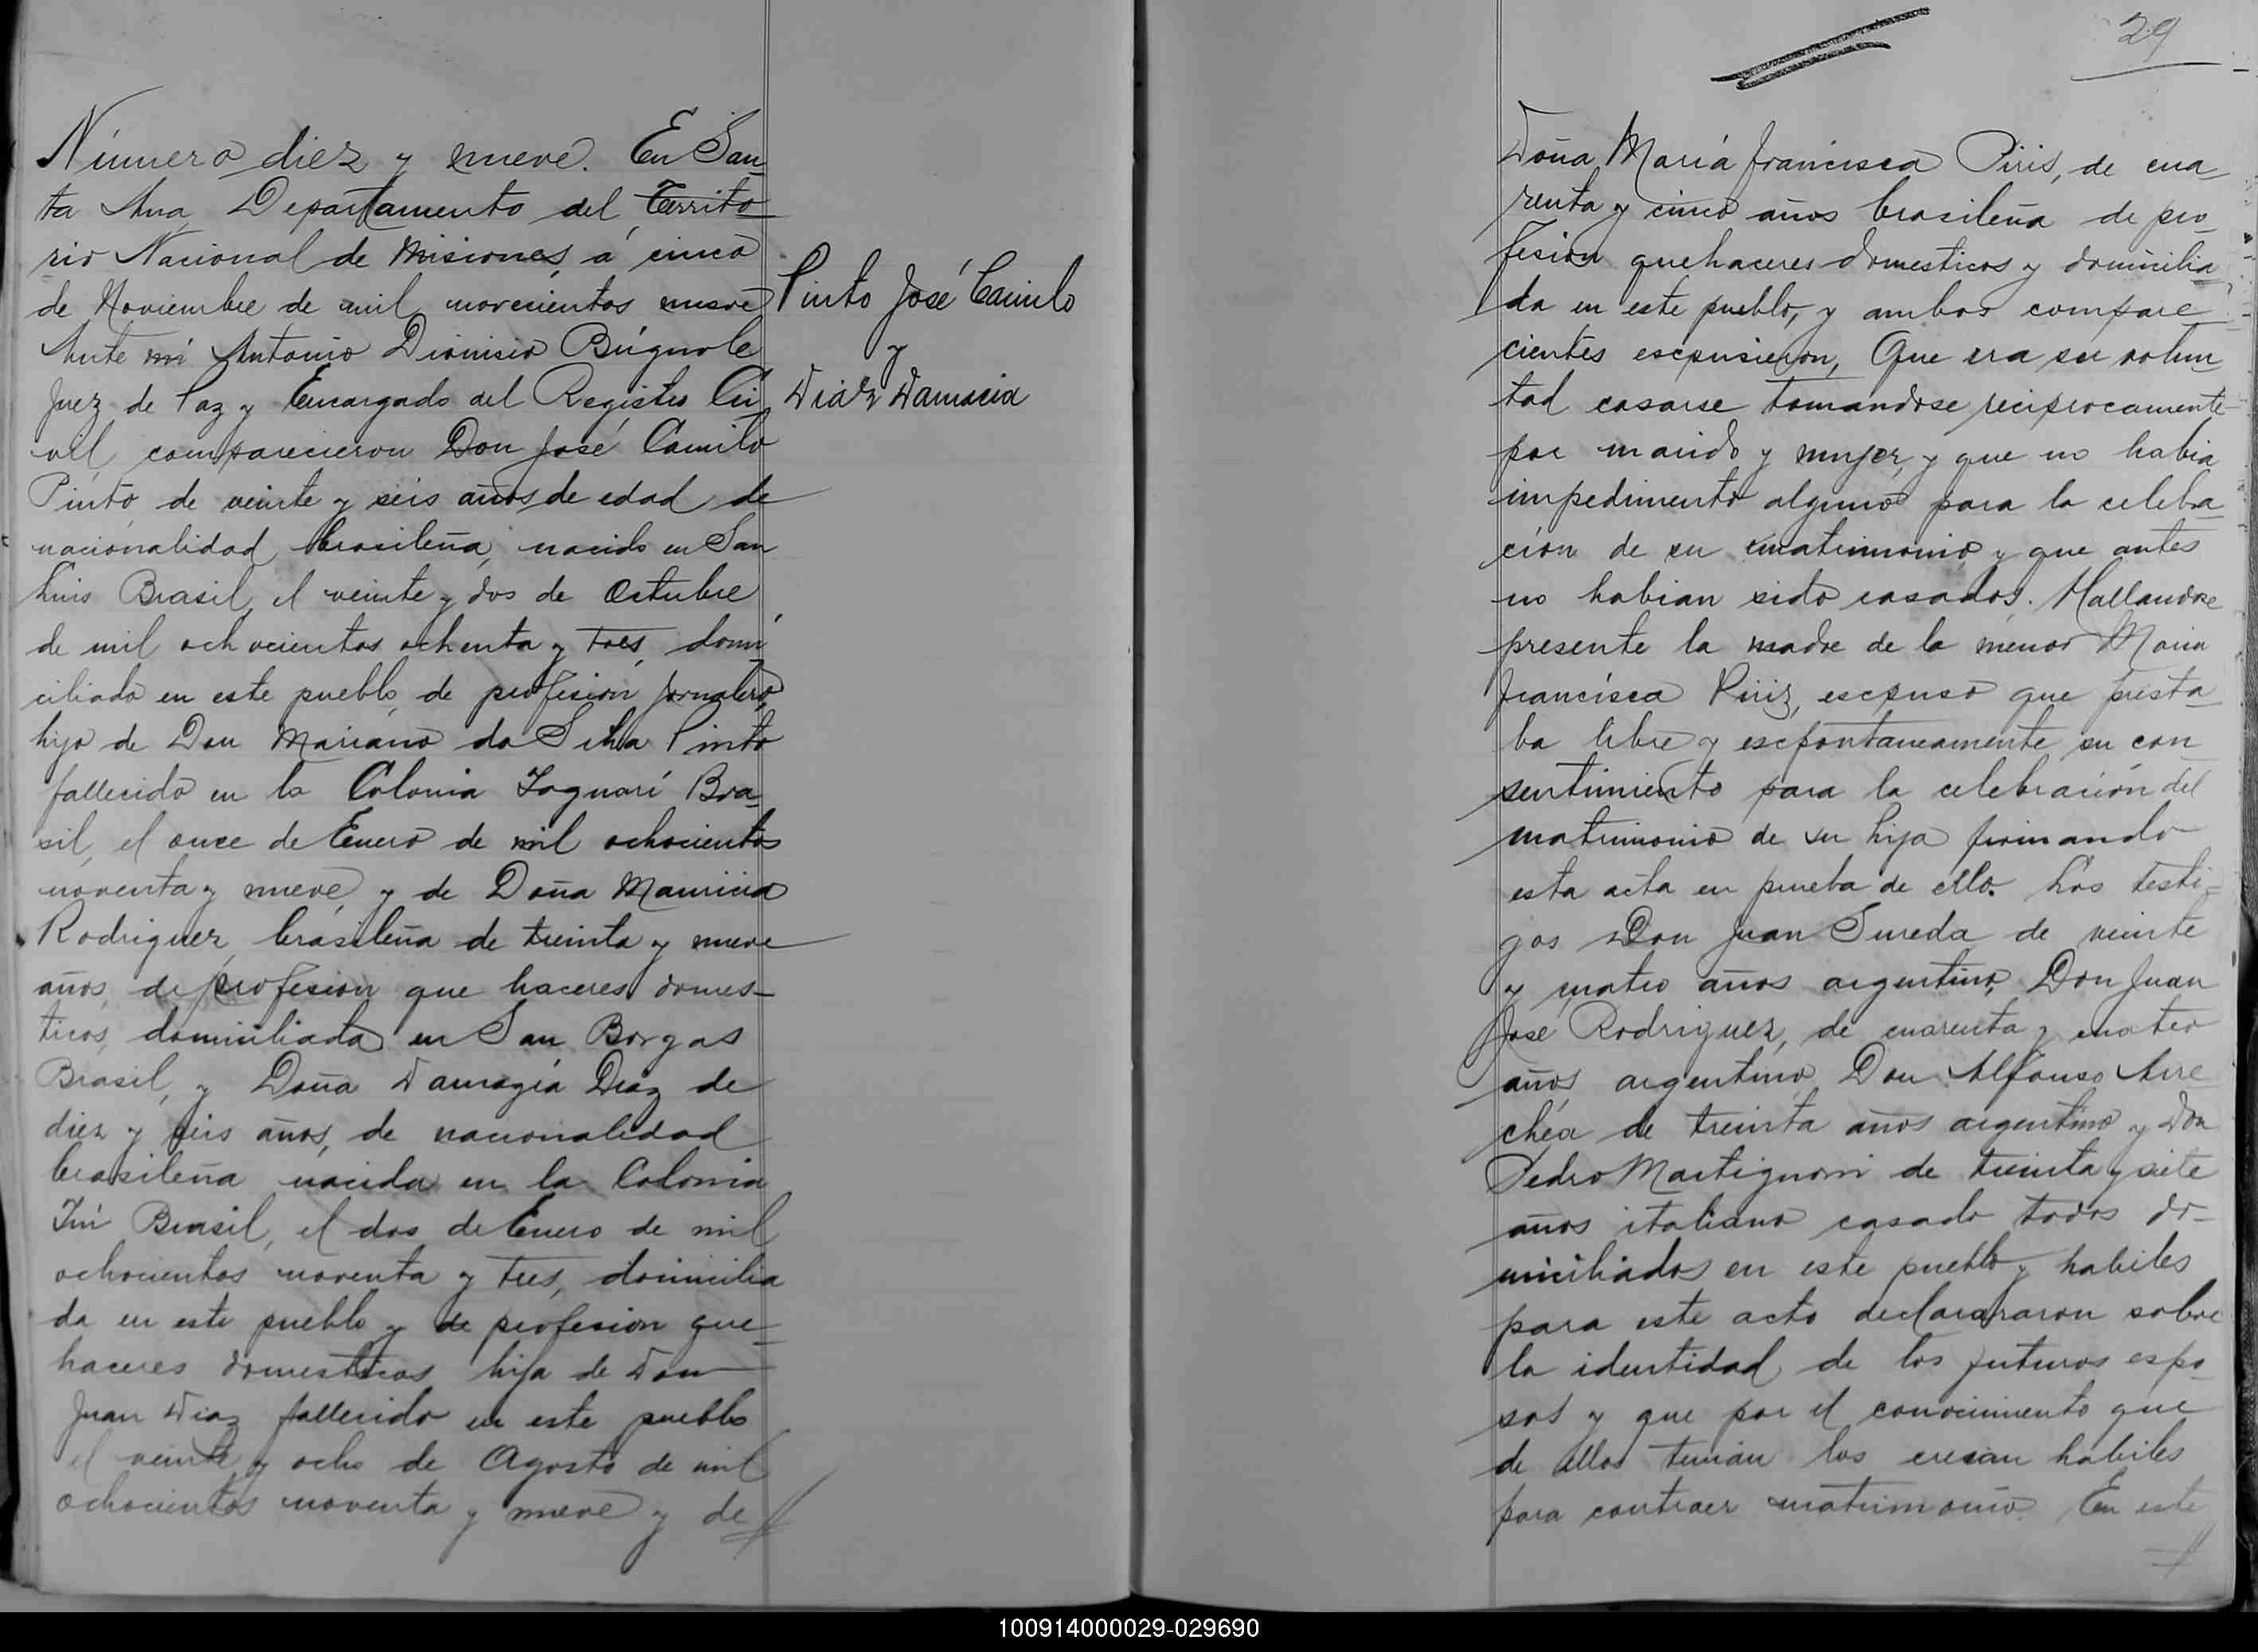 Número diez y nueve. En San
ta Ana, Departamento del Territo
rio Nacional de Misiones, á cinco
de Noviembre de mil novecientos nueve
Ante mi Antonio Dionisio Búgnole
Juez de Paz y Encargado del Registro Ci
vil, comparecieron Don José Camilo
Pinto, de veinte y seis años de edad, de
nacionalidad brasileña, nacido en San
Luis Brasil, el veinte y dos de Octubre
de mil ochocientos ochenta y tres, domi
ciliado en este pueblo, de profesion jornalero,
hijo de Don Mariano da Silva Pinto
fallecido en la Colonia Jaguarí Bra
sil, el once de Enero de mil ochocientos
noventa y nueve, y de Doña Mauricia
Rodriguez, brasileña de treinta y nueve
años, de profesion que haceres domes-
ticos, domiciliada en San Borgas
Brasil, y Doña Damazia Diaz de
diez y seis años, de nacionalidad
brasileña nacida en la Colonia
Brasil, el dos de Enero de mil
ochocientos noventa y tres, domicilia
da en este pueblo y de profesion que-
haceres domesticos hija de Don
Juan Diaz fallecido en este pueblo
el veinte y ocho de Agosto de mil
ochocientos noventa y nueve y de
Pinto José Camilo
y
Diaz Damacia
29
Doña María Francisca Piris, de cua
renta y cinco años brasileña de pro
fesion quehaceres domesticos y domicilia
da en este pueblo, y ambos compare
cientes escpusieron, Que era su volun
tad casarse tomandose reciprocamente
por marido y mujer, y que no habia
impedimento alguno para la celebra
cion de su matrimonio, y que antes
no habian sido casados. Hallandose
presente la madre de la menor Maria
Francisca Piriz, escpuso que presta-
ba libre y escpontaneamente su con
sentimiento para la celebración del
matrimonio de su hija firmando
esta acta en prueba de ello. Los testi-
gos Don Juan Sureda de veinte
y cuatro años argentino, Don Juan
José Rodriguez, de cuarenta y cuatro
años argentino, Don Alfonso Arre
chéa de treinta años argentino y Don
Pedro Martignoni de treinta y siete
años italiano casado todos do-
miciliados en este pueblo y habiles
para este acto declarararon sobre
la identidad de los futuros espo-
sos y que por el conocimiento que
de ellos tenian los creian habiles
para contraer matrimonio. En este
100914000029-029690